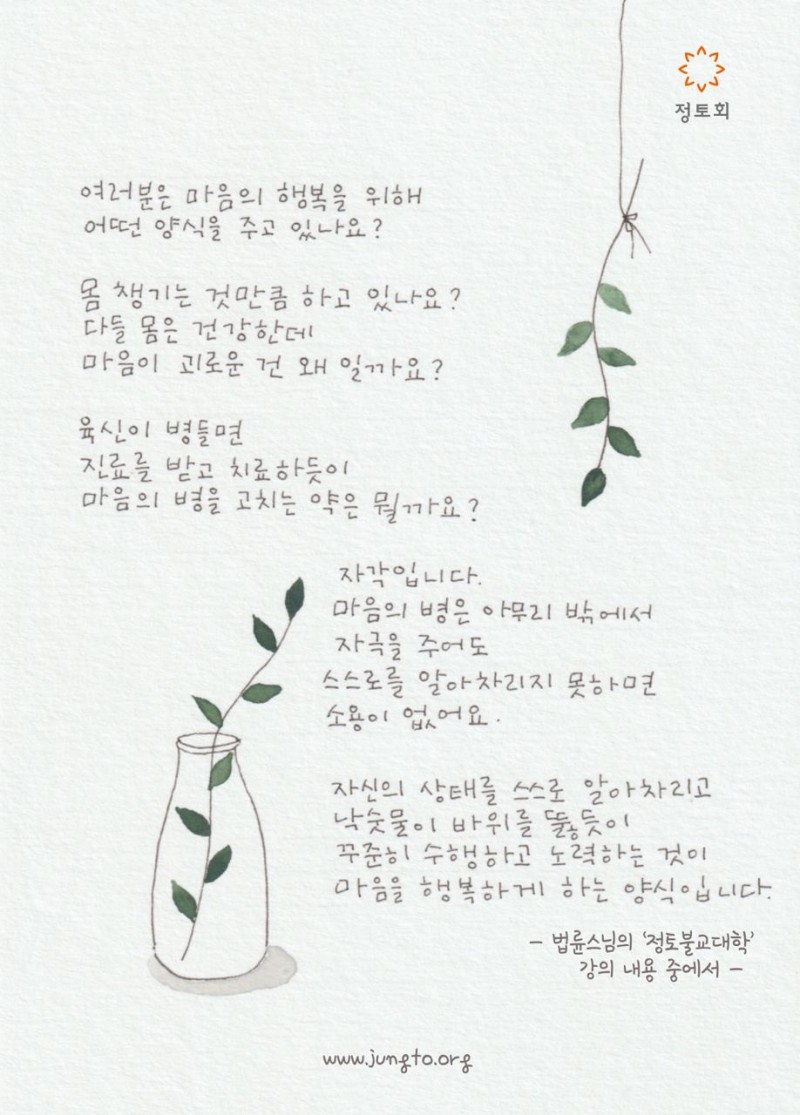 정토회
여러분은 마음의 행복을 위해
어떤 양식을 주고 있나요?
몸 챙기는 것만큼 하고 있나요?
다들 몸은 건강한데
마음이 괴로운 건 왜 일까요?
육신이 병들면
진료를 받고 치료하듯이
마음의 병을 고치는 약은 뭘까요?
자각입니다.
마음의 병은 아무리 밖에서
자극을 주어도
스스로를 알아차리지 못하면
소용이 없어요.
자신의 상태를 스스로 알아차리고
낙숫물이 바위를 뚫듯이
꾸준히 수행하고 노력하는 것이
마음을 행복하게 하는 양식입니다.
- 법륜스님의 '정토불교대학'
강의 내용 중에서 -
www.jungto.org